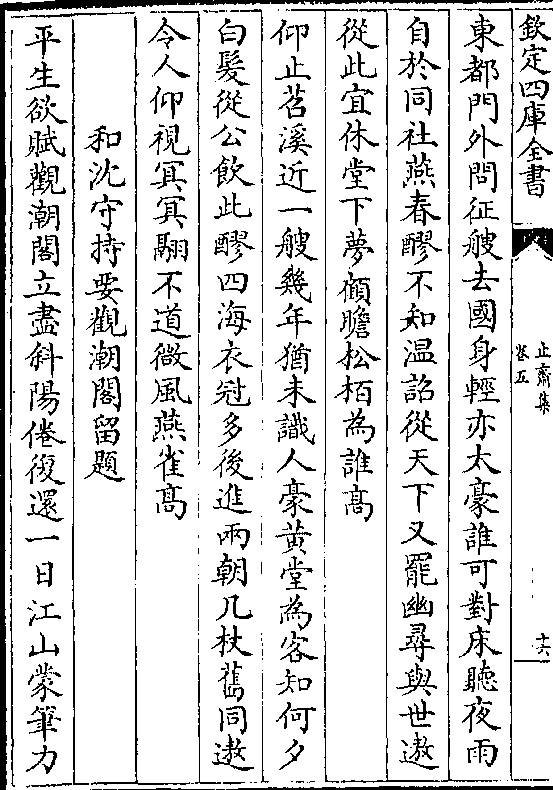 欽定四庫全書
止齋集
卷五
十六
東都門外問征艘去國身輕亦太豪誰可對床聽夜雨
自於同社燕春醪不知温詔從天下又罷幽尋與世遨
從此宜休堂下夢顧瞻松栢為誰高
仰止苕溪近一艘幾年猶未識人豪黄堂為客知何夕
白髮從公飲此醪四海衣冠多後進兩朝几杖舊同遨
令人仰視冥冥翮不道微風燕雀高
和沈守持要觀潮閣留題
平生欲賦觀潮閣立盡斜陽倦復還一日江山蒙筆力